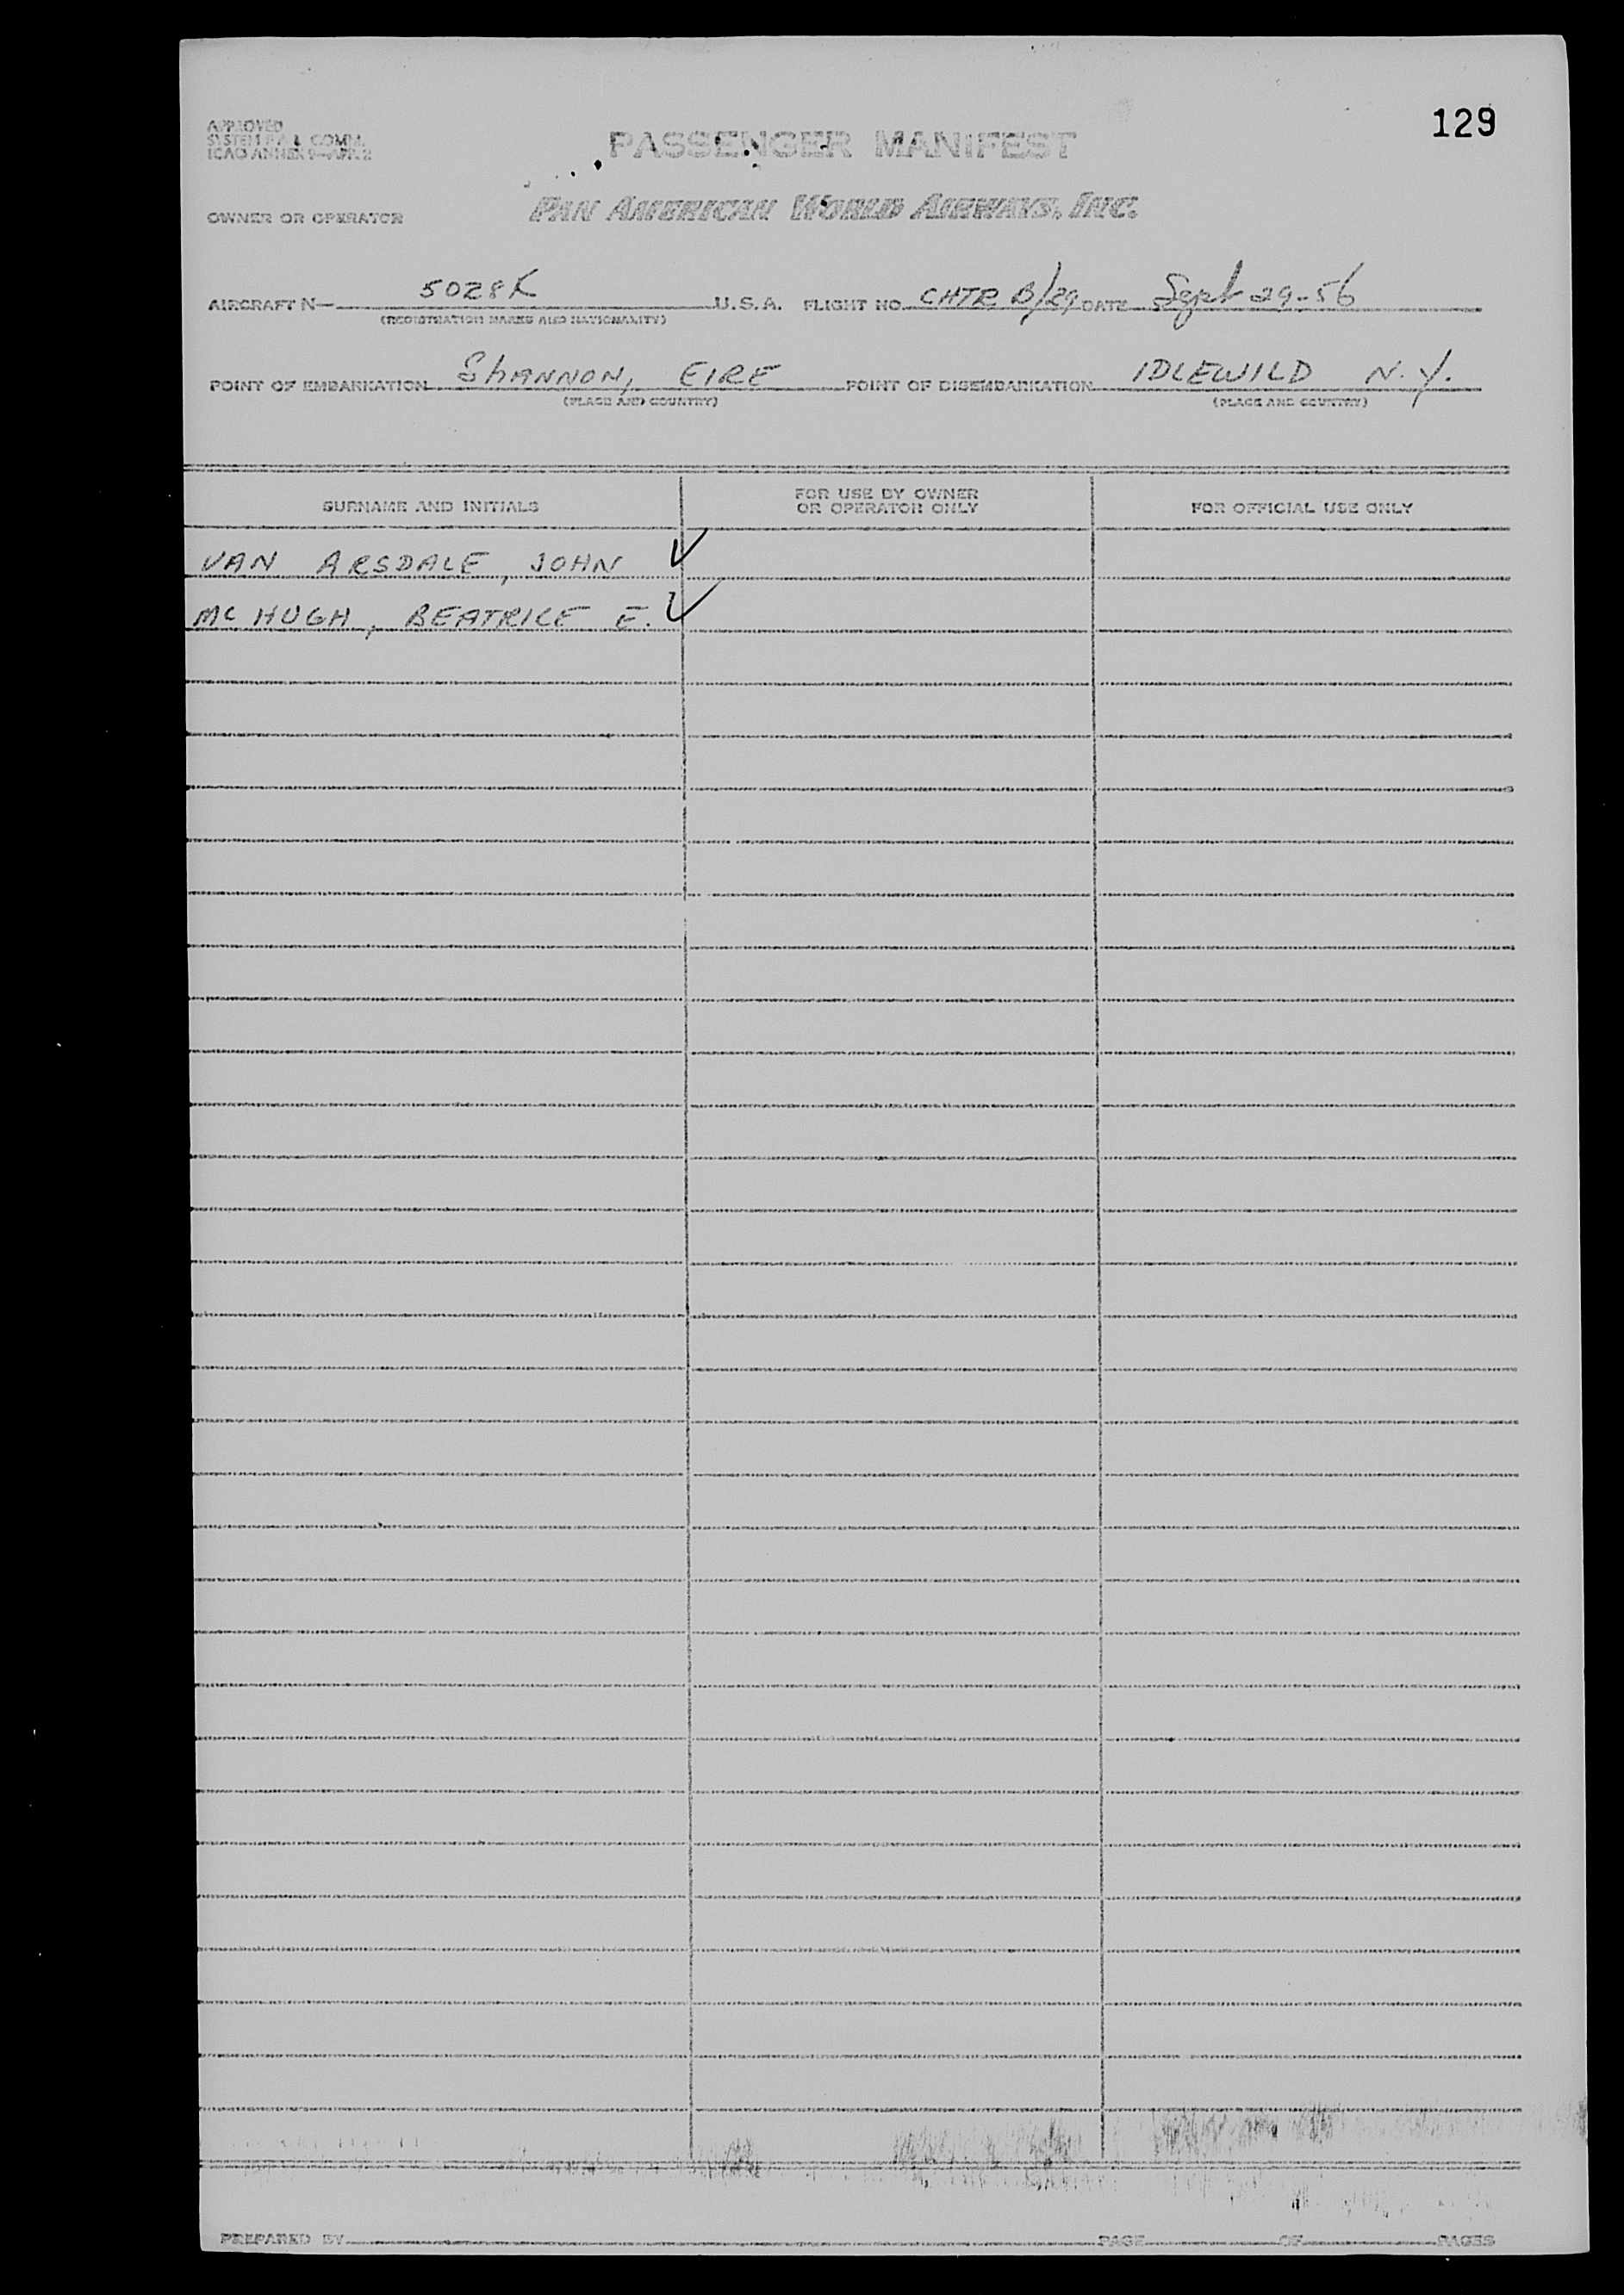 129
APPROVED
SYSTEM F. & COMM.
ICAO ANNEX 9—APP. 2
PASSENGER MANIFEST
OWNER OR OPERATOR PAN AMERICAN WORLD AIRWAYS, INC.
AIRCRAFT N— 5028K U.S.A. FLIGHT NO. CHTR B/29 DATE Sept 29-56
(REGISTRATION MARKS AND NATIONALITY)
POINT OF EMBARKATION ShANNON, EIRE POINT OF DISEMBARKATION IDLEWILD N.Y.
(PLACE AND COUNTRY) (PLACE AND COUNTRY)
SURNAME AND INITIALS
FOR USE BY OWNER
OR OPERATOR ONLY
FOR OFFICIAL USE ONLY
VAN ARSDALE, JOHN ✓
MC HUGH, BEATRICE E. ✓
PREPARED BY PAGE OF PAGES